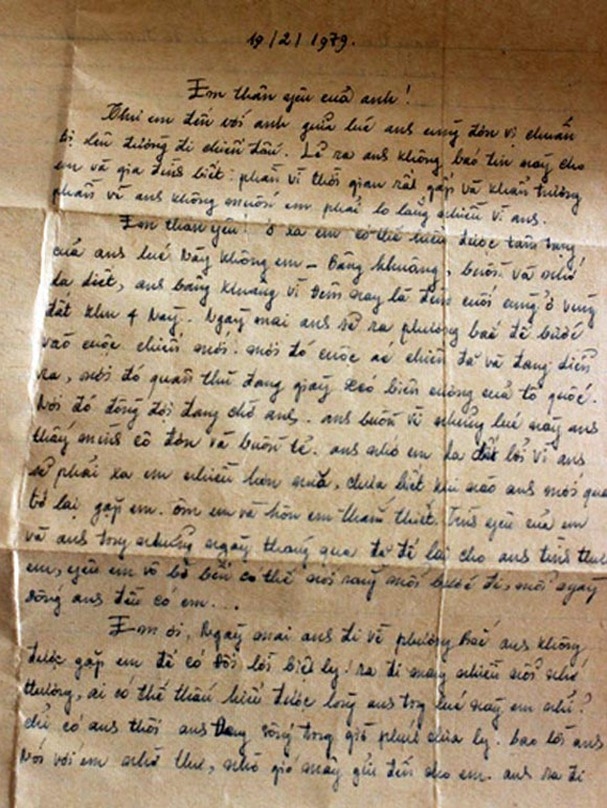 19/2/1979.
Em thân yêu của anh!
Thư em đến với anh giữa lúc ans cùng đơn vị chuẩn
bị lên đường đi chiến đấu. Lẽ ra ans không báo tin này cho
em và gia đình biết: phần vì thời gian rất gấp và khẩn trương
phần vì ans không muốn em phải lo lắng nhiều vì ans.
Em thân yêu! ở xa em có thể hiểu được tâm trạng
của ans lúc này không em - Bâng khuâng, buồn và nhớ
da diết, ans bâng khuâng vì đêm nay là đêm cuối cùng ở vùng
đất khu 4 này. Ngày mai ans sẽ ra phương bắc để bước
vào cuộc chiến mới. nơi đó cuộc ác chiến đã và đang diễn
ra, nơi đó quân thù đang giày xéo biên cương của tổ quốc.
Nơi đó đồng đội đang chờ ans. ans buồn vì những lúc này ans
thấy mình cô đơn và buồn tẻ. ans nhớ em da diết bởi vì ans
sẽ phải xa em nhiều hơn nữa, chưa biết khi nào ans mới quay
trở lại gặp em. ôm em và hôn em thắm thiết. Tình yêu của em
và ans trong những ngày tháng qua đã để lại cho ans tình thương
em, yêu em vô bờ bến có thể nói rằng mỗi bước đi, mỗi ngày
sống ans đều có em...
Em ơi, Ngày mai ans đi về phương Bắc ans không
được gặp em để có đôi lời biệt ly! ra đi mang nhiều nỗi nhớ
thương, ai có thể thấu hiểu được lòng ans trong lúc này em nhỉ?
chỉ có ans thôi ans đang sống trong giờ phút chia ly. bao lời ans
Nói với em nhờ thư, nhờ gió mây gửi đến cho em. ans ra đi